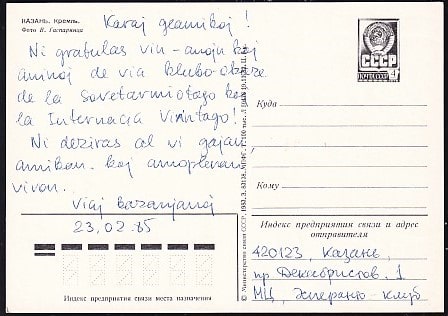 КАЗАНЬ. Кремль.
Фото И. Гаспаряна
Karaj geamikoj!
Ni gratulas vin-anojn kaj
aminoj de via klubo okaze
de la Sovetarmiotago kaj
la Internacia Virintago!
Ni deziras al vi gajan,
amikan kaj amoplenan
vivon.
Viaj kazananoj
23.02.85
ПОЧТА СССР
4к
Куда
Кому
Индекс предприятия связи и адрес
отправителя
420123, Казань,
пр. Декабристов, 1
МЦ, Эсперанто клуб
Индекс предприятия связи места назначения
© Министерство связи СССР, 1983.